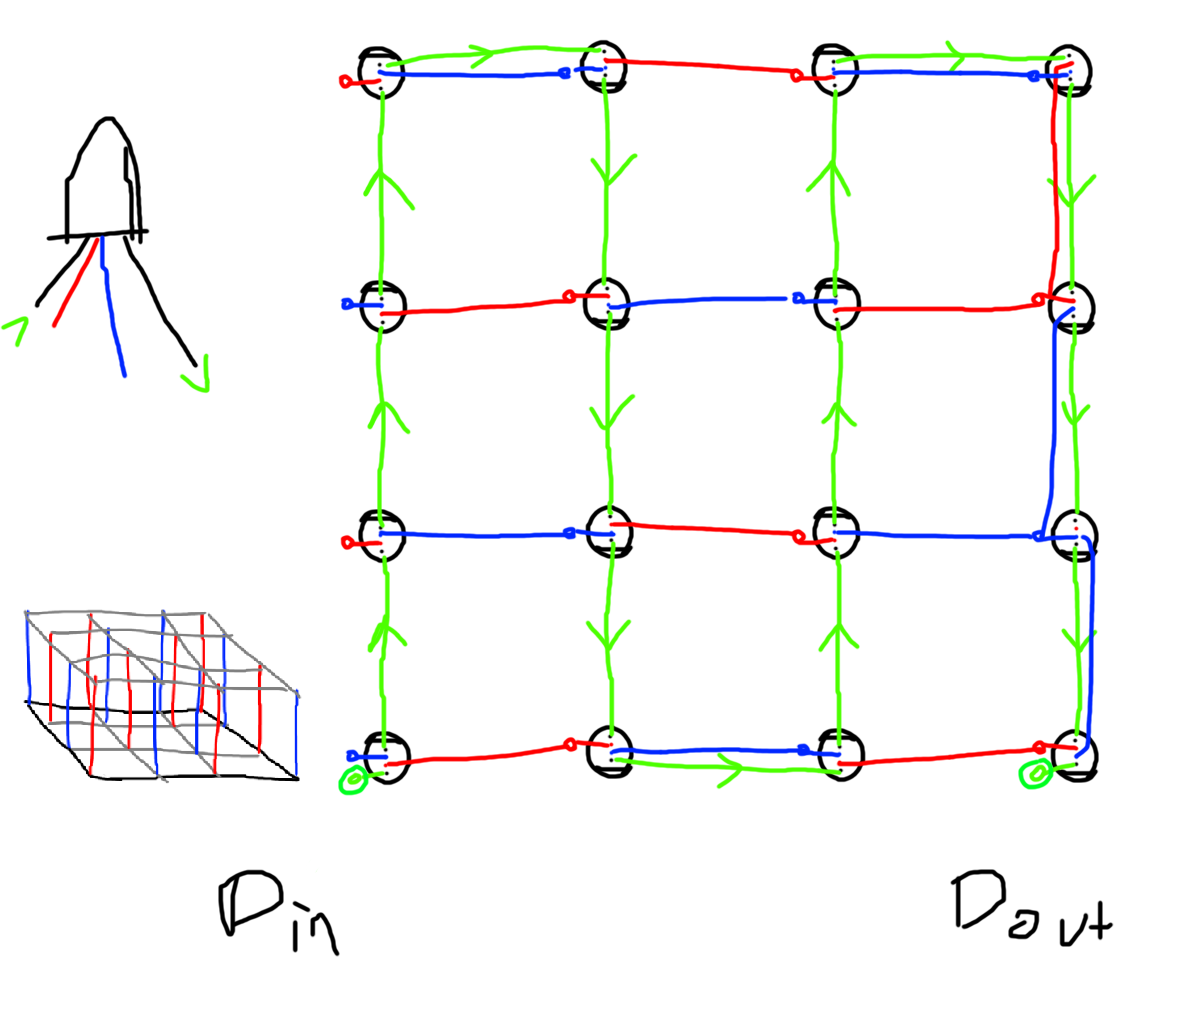 Din
Dout